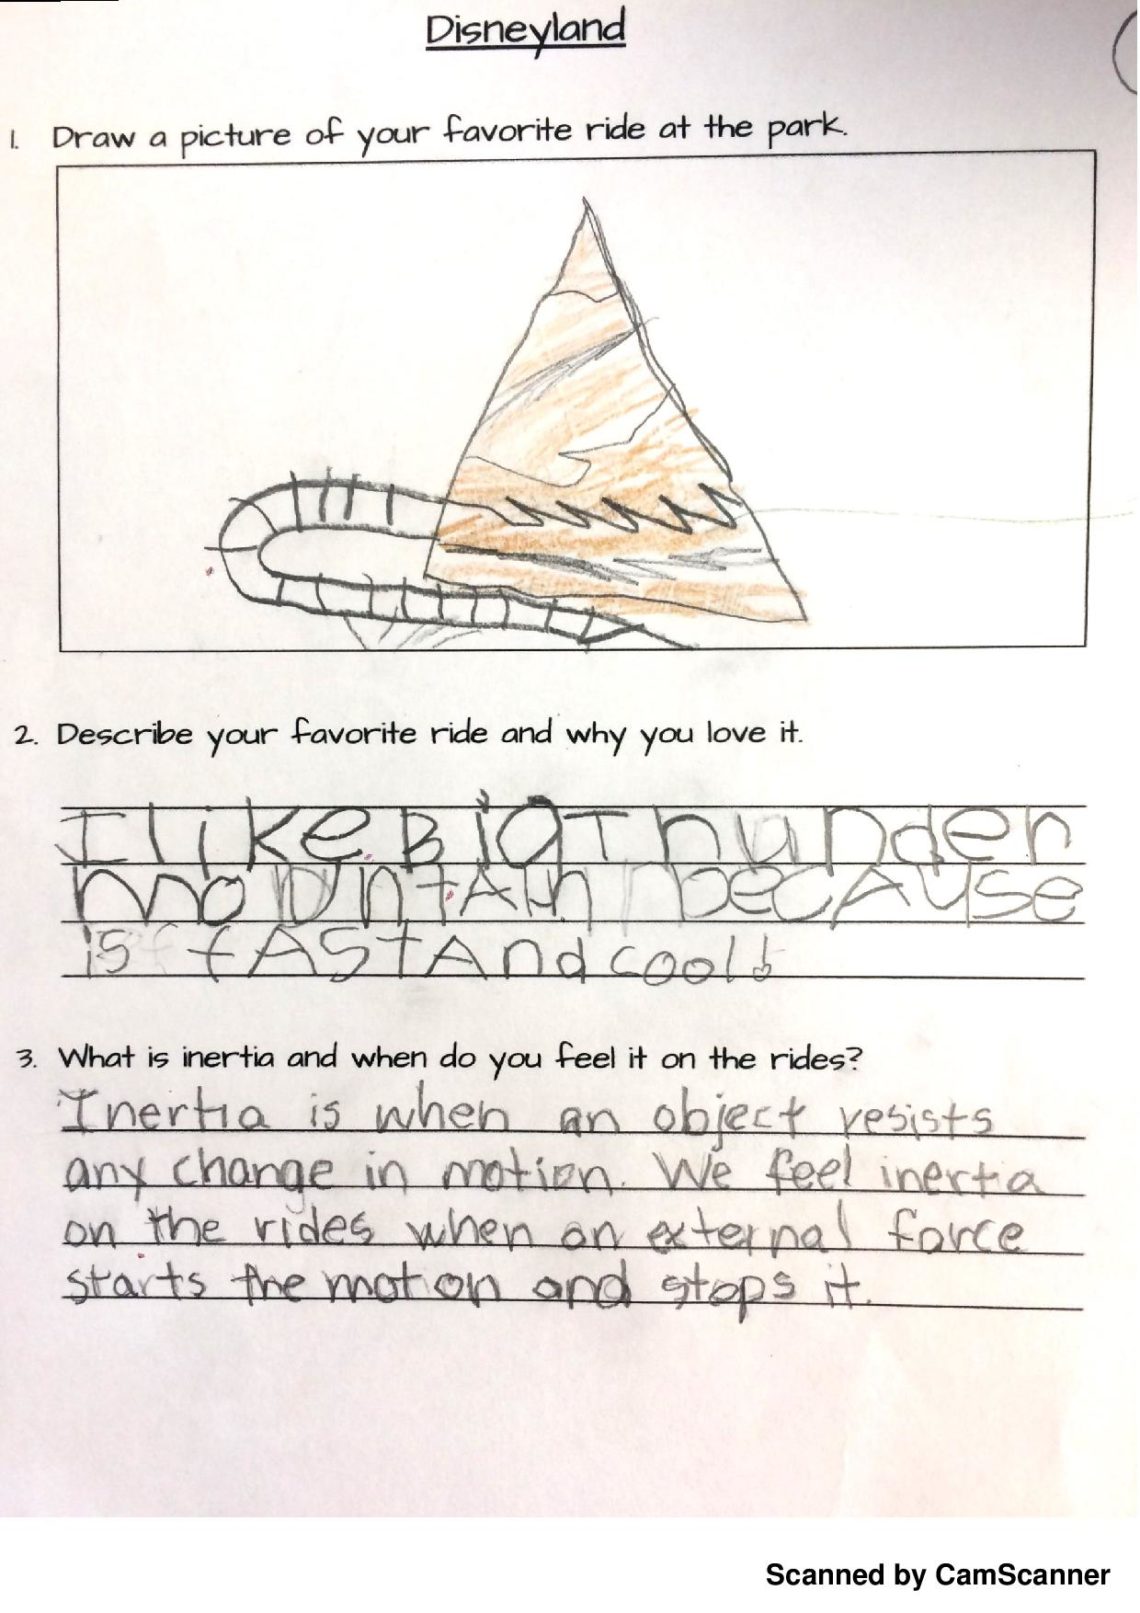 Disneyland
1. Draw a picture of your favorite ride at the park.
2. Describe your favorite ride and why you love it.
I like Big Thunder
mountAin becAuse
is fAst And cool!
3. What is inertia and when do you feel it on the rides?
Inertia is when an object resists
any change in motion. We feel inertia
on the rides when an external force
starts the motion and stops it.
Scanned by CamScanner